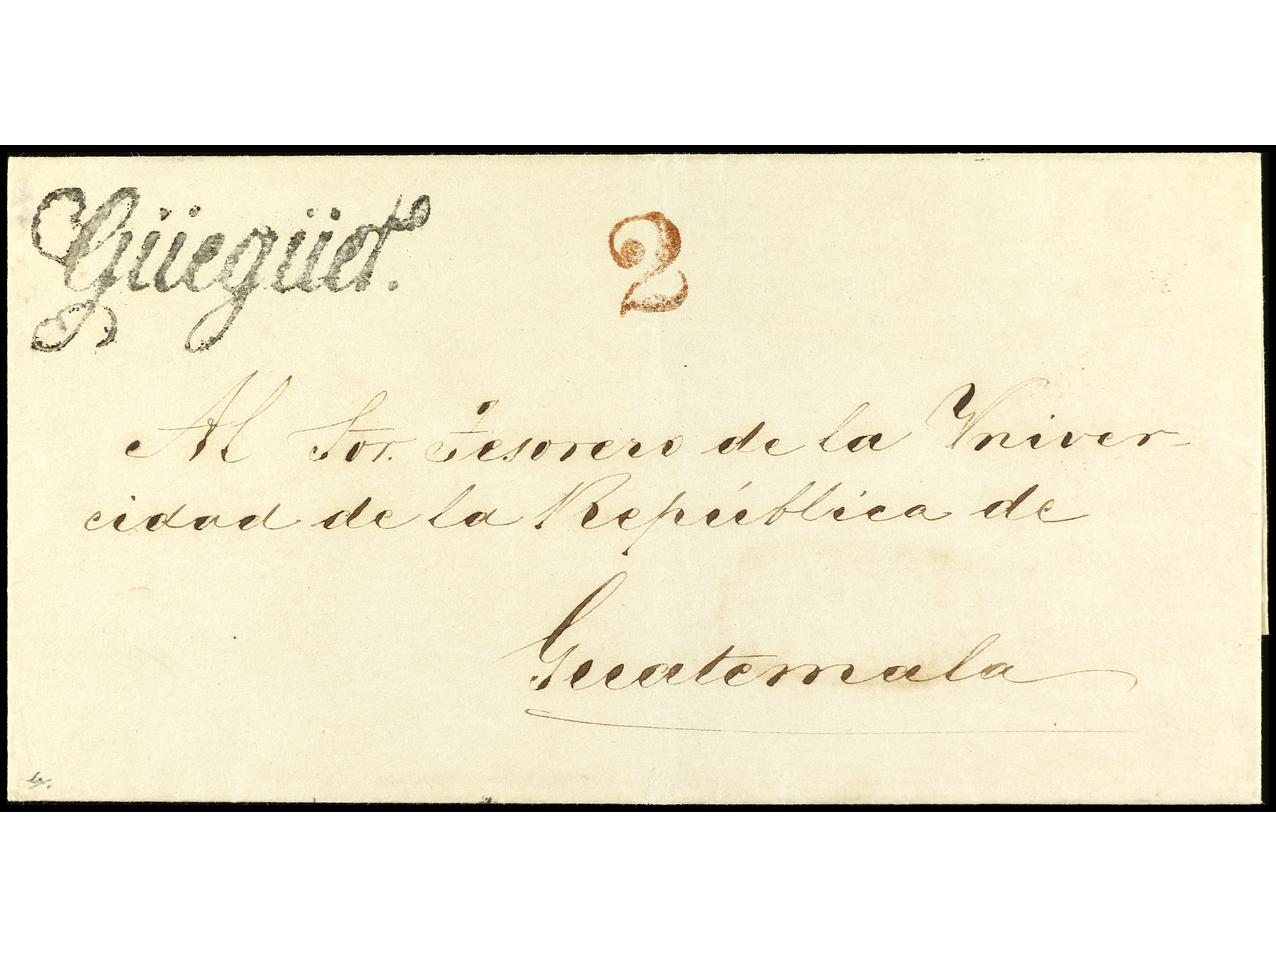 Güegüet.º
2
Al Sor. Tesorero de la Vniver-
cidad de la República de
Guatemala